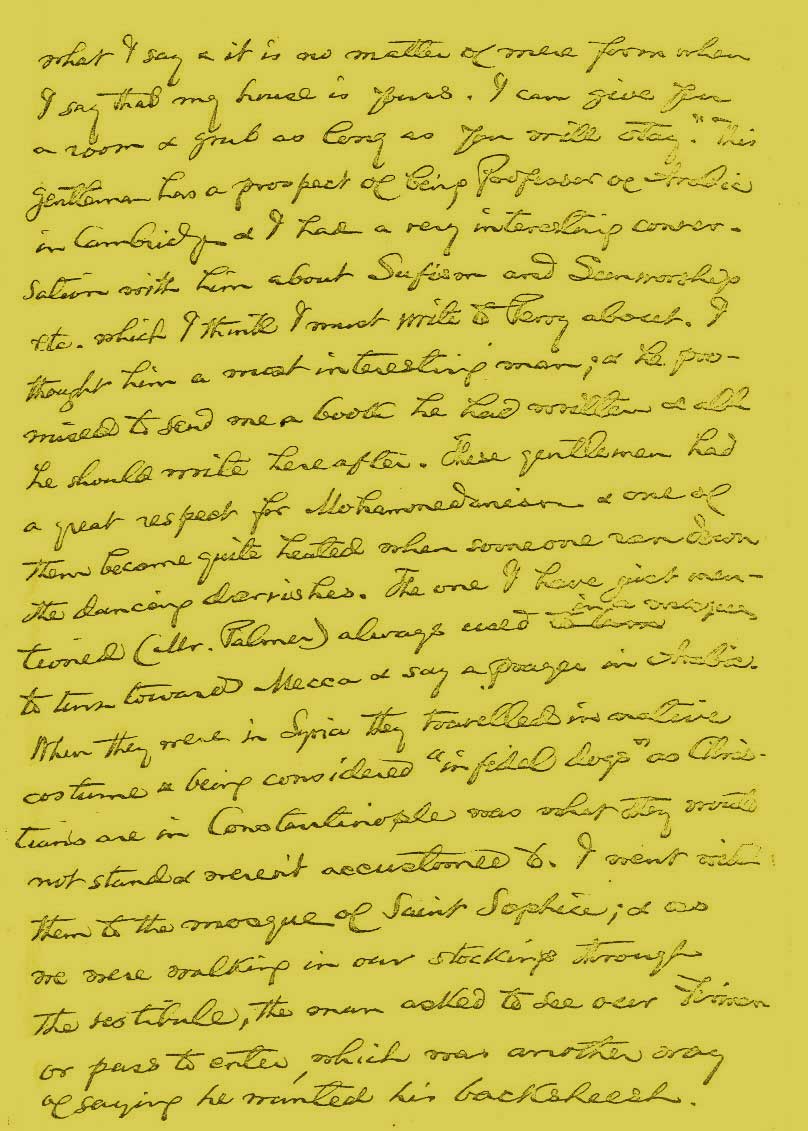 what I say & it is no matter of mere form when
I say that my house is yours. I can give you
a room & grub as long as you will stay." This
gentleman has a prospect of being Professor of Arabic
in Cambridge & I had a very interesting conver-
sation with him about Sufism and Sunworship
etc. which I think I must write to about. I
thought him a most interesting man; & he pro-
mised to send me a book he had written & all
he should write hereafter. These gentlemen had
a great respect for Mohammedanism & one of
them became quite heated when someone ran down
the dancing dervishes. The one I have just men-
tioned (Mr. Palmer) always used in a mosque
to turn toward Mecca & say a prayer in Arabic.
When they were in Syria they travelled in native
costume & being considered "infidel dogs" as Chris-
tians are in Constantinople was what they would
not stand & weren't accustomed to. I went with
them to the mosque of Saint Sophia; & as
we were walking in our stockings through
the vestibule, the man asked to see our firman
or pass to enter, which was another way
of saying he wanted his backsheesh.